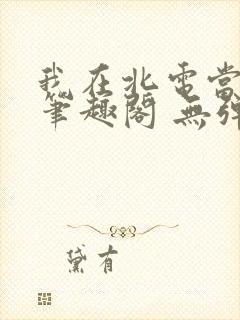 我在北電當
筆趣閣 無彈
黛有